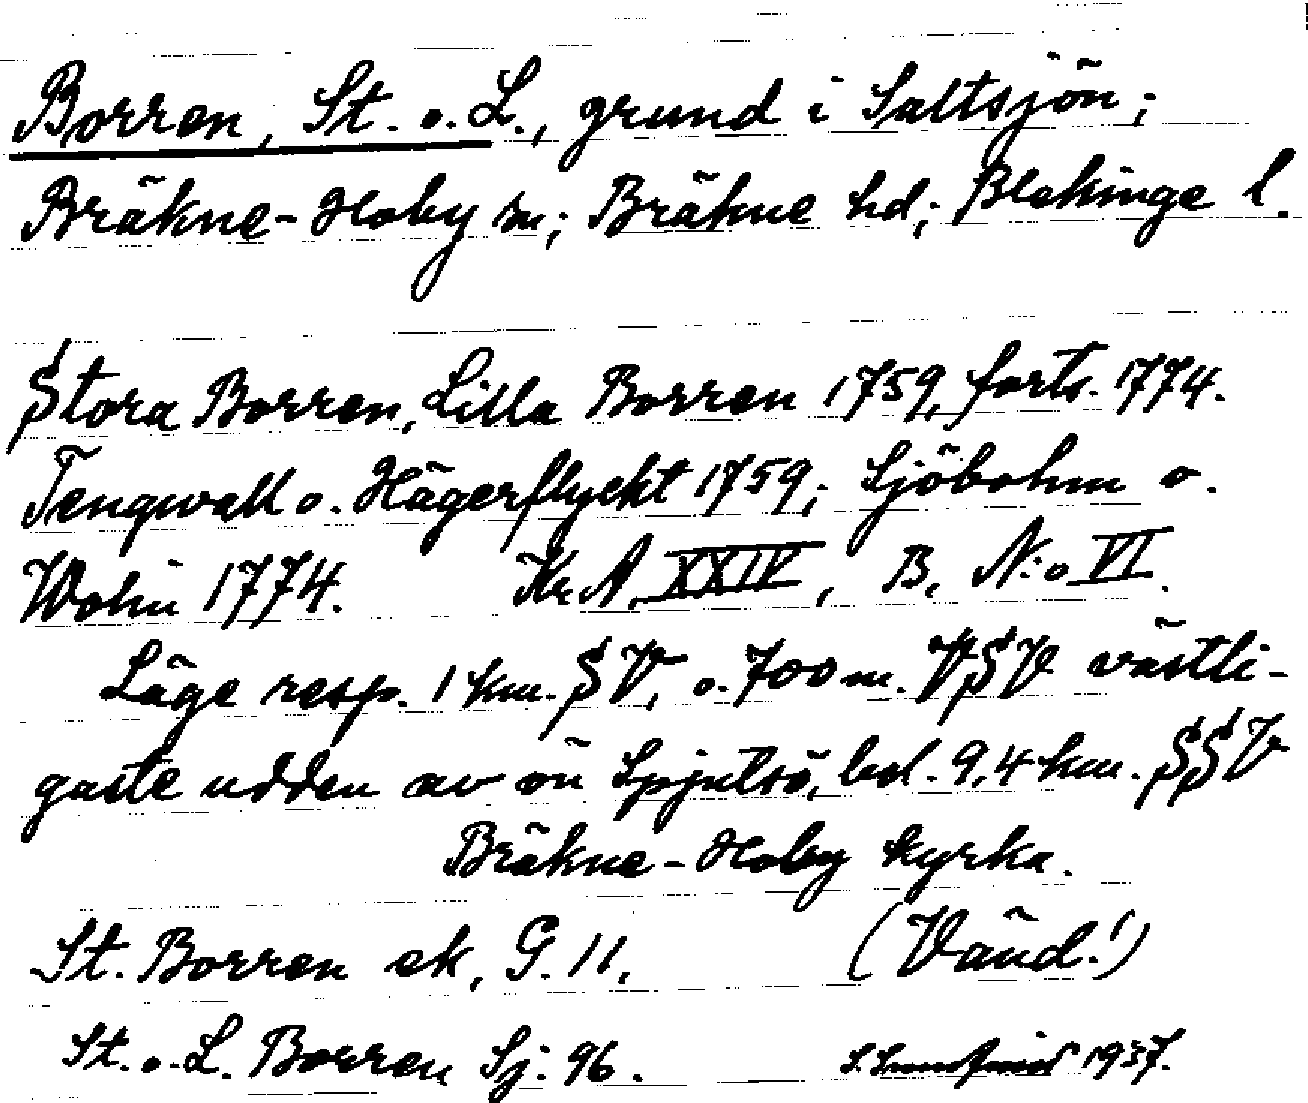 Borren, St. o. L., grund i Saltsjön;
Bräkne-Hoby sn; Bräkne hd; Blekinge l.
Stora Borren, Lilla Borren 1759, forts. 1774.
Tengwall o. Hägerflycht 1759; Sjöbohm o.
Wohn 1774. Kr. A. XXIV, B. N:o VI.
Läge resp. 1 km. SV, o. 700 m. VSV västli-
gaste udden av ön Spjutsö, bel. 9,4 km. SSV
Bräkne-Hoby kyrka.
St. Borren ek, G. 11, (Vänd!)
St. o. L. Borren Sj. 96. 1937.